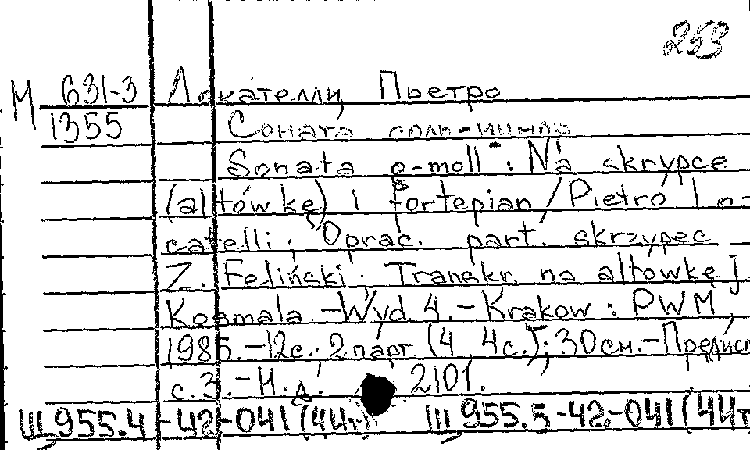 253
М 631-3 Локателли, Пьетро
1355 Соната соль-минор
Sonata g-moll : Na skrypce
(altówkę) i fortepian / Pietro Lo-
catelli ; Oprac. part. skrzypec
Z. Feliński. Transkr. na altówkę J.
Kosmala. - Wyd. 4. - Krakow : PWM,
1985. - 12с. ; 2 парт. (4, 4с.) ; 30см. - Предисл.
с. 3. - Н.д. 2101.
Ш 955.4-42-041(44т) Ш 955.5-42-041(44т